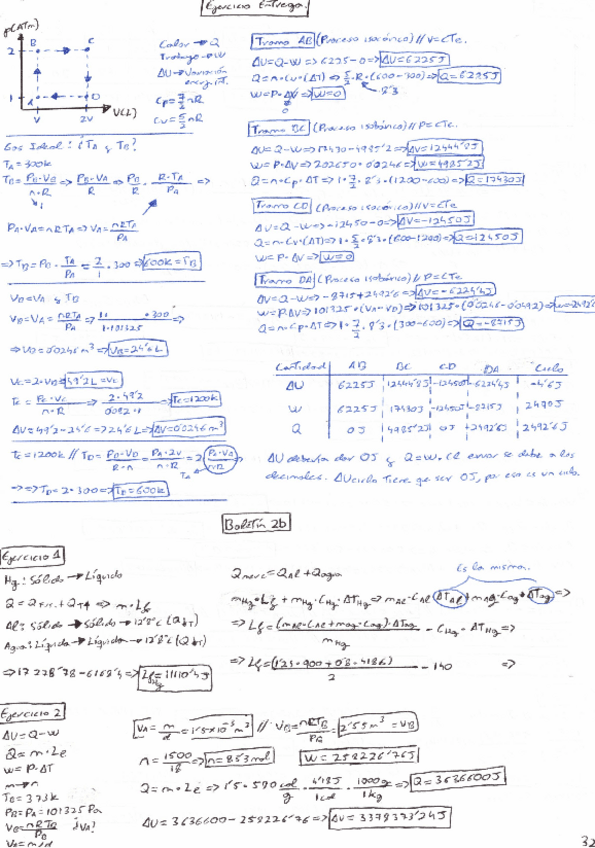 Ejercicio Entrega.
P(Atm)
2
B
C
1
A
D
V
2V
V(L)
Calor → Q
Trabajo → W
ΔU → Variación energ. int.
Cp = 7/2 nR
Cv = 5/2 nR
Gas Ideal: ¿TA y TB?
TA = 300K
TB = PB·VB / n·R => PB·VA / R => PB / R · R·TA / PA =>
PA·VA = nRTA => VA = nRTA / PA
=> TB = PB · TA / PA = 2/1 · 300 => 600K = TB
VB = VA y TB
VB = VA = nRTA / PA =>
=> VB = 0'0246 m³ => VB = 24'6L
VC = 2·VB = 49'2L = VC
TC = PC·VC / n·R => 2·49'2 / 0'082·1 => TC = 1200K
ΔV = 49'2 - 24'6 => 24'6L => ΔV = 0'0246 m³
TC = 1200K // TD = PD·VD / R·n = PA·2V / n·R = 2 PA·VA / nR
TA
=> => TD = 2·300 => TD = 600K
Tramo AB (Proceso isocórico) // V = Cte.
ΔU = Q - W => 6225 - 0 => ΔU = 6225J
Q = n·Cv·(ΔT) => 5/2·R·(600-300) => Q = 6225J
8'3
W = P·ΔV => W = 0
0
Tramo BC (Proceso isobárico) // P = Cte.
ΔU = Q - W => 17430 - 4985'2 => ΔU = 12444'8J
W = P·ΔV => 202650·0'0246 => W = 4985'2J
Q = n·Cp·ΔT => 1·7/2·8'3·(1200-600) => Q = 17430J
Tramo CD (Proceso isocórico) // V = Cte
ΔU = Q - W => -12450 - 0 => ΔU = -12450J
Q = n·Cv·(ΔT) => 1·5/2·8'3·(600-1200) => Q = 12450J
W = P·ΔV => W = 0
Tramo DA (Proceso isobárico) // P = Cte.
ΔU = Q - W => -8715 + 2492'6 =>
W = P·ΔV => 101325·(VA-VD) => 101325·(0'0246-0'0492) =>
Q = n·Cp·ΔT => 1·7/2·8'3·(300-600) => Q = -8715J
Cantidad AB BC CD DA Ciclo
ΔU 6225J 12444'8J -12450J
W 6225J 17430J -12450J -8215J 2490J
Q 0J 4985'2J 0J -2492'6J 2492'6J
ΔU debería dar 0J y Q = W. El error se debe a los
decimales. ΔU ciclo tiene que ser 0J, por eso es un ciclo.
Boletín 2b
Ejercicio 1
Hg: Sólido → Líquido
Q = Q + QTª => m·Lf
Al: Sólido → Sólido → 12'8°C (Q↓T)
Agua: Líquida → Líquido → 12'8°C (Q↓T)
=> 17 278'78 - 6168'4 => LfHg = 11110'4J
Q merc = QAl + Qagua
Es la misma.
mHg·Lf + mHg·CHg·ΔTHg => mAl·CAl ΔTAl + mAg·Cag·ΔTag =>
=> Lf = (mAl·CAl + mag·Cag)·ΔTag / mHg - CHg·ΔTHg =>
=> Lf = (1'25·900 + 0'8·4186) / 2 - 140 =>
Ejercicio 2
ΔU = Q - W
Q = m·Le
W = P·ΔT
m → n
TB = 373K
PB = PA = 101325 Pa
VB = nRTB / PB ¿VA?
VA = m/d
VA = m/d = 1'5×10⁻³ m³ // VB = nRTB / PB = 2'55 m³ = VB
n = 1500/18 => n = 83'3 mol W = 258226'76J
Q = m·Le => 1'5·580 cal/g · 4'18J/1cal · 1000g/1kg => Q = 3636600J
ΔU = 3636600 - 258226'76 => ΔU = 3378373'24J
32